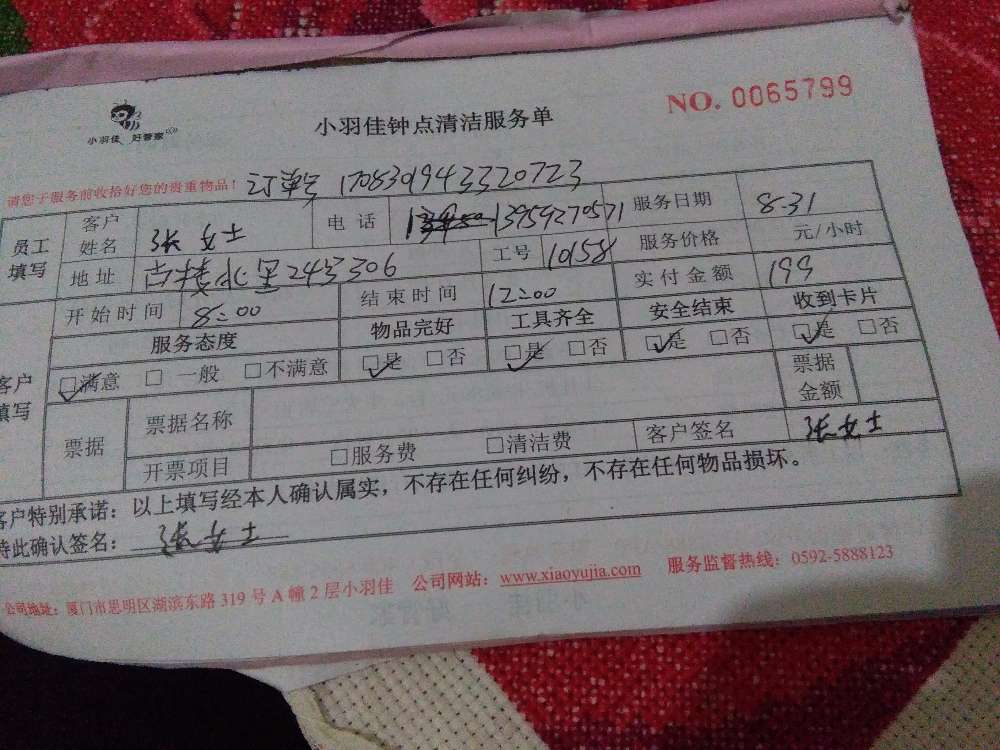 小羽佳 好管家
小羽佳钟点清洁服务单
NO. 0065799
请您于服务前收拾好您的贵重物品！ 订单号 170830194332072​3
员工填写 客户姓名 张女士 电话 13959270571 服务日期 8-31
地址 北里243306 工号 10158 服务价格 元/小时
开始时间 8:00 结束时间 12:00 实付金额 199
客户填写 服务态度 物品完好 工具齐全 安全结束 收到卡片
□满意 □一般 □不满意 □是 □否 □是 □否 □是 □否 □是 □否
票据 票据名称 票据金额
开票项目 □服务费 □清洁费 客户签名 张女士
客户特别承诺：以上填写经本人确认属实，不存在任何纠纷，不存在任何物品损坏。
特此确认签名： 张女士
公司地址：厦门市思明区湖滨东路 319 号 A 幢 2 层小羽佳 公司网站：www.xiaoyujia.com 服务监督热线：0592-5888123